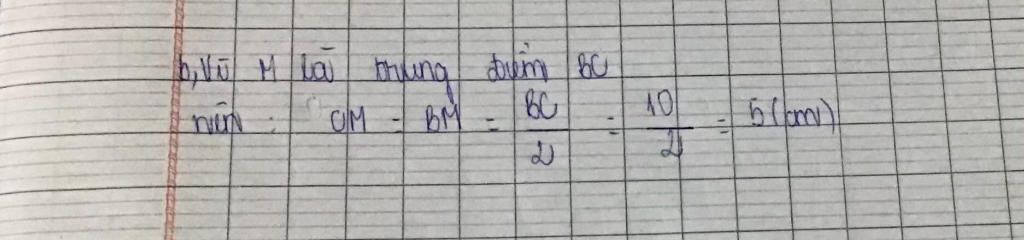 b, Vì M là trung điểm BC
nên : CM = BM = BC/2 = 10/2 = 5 (cm)